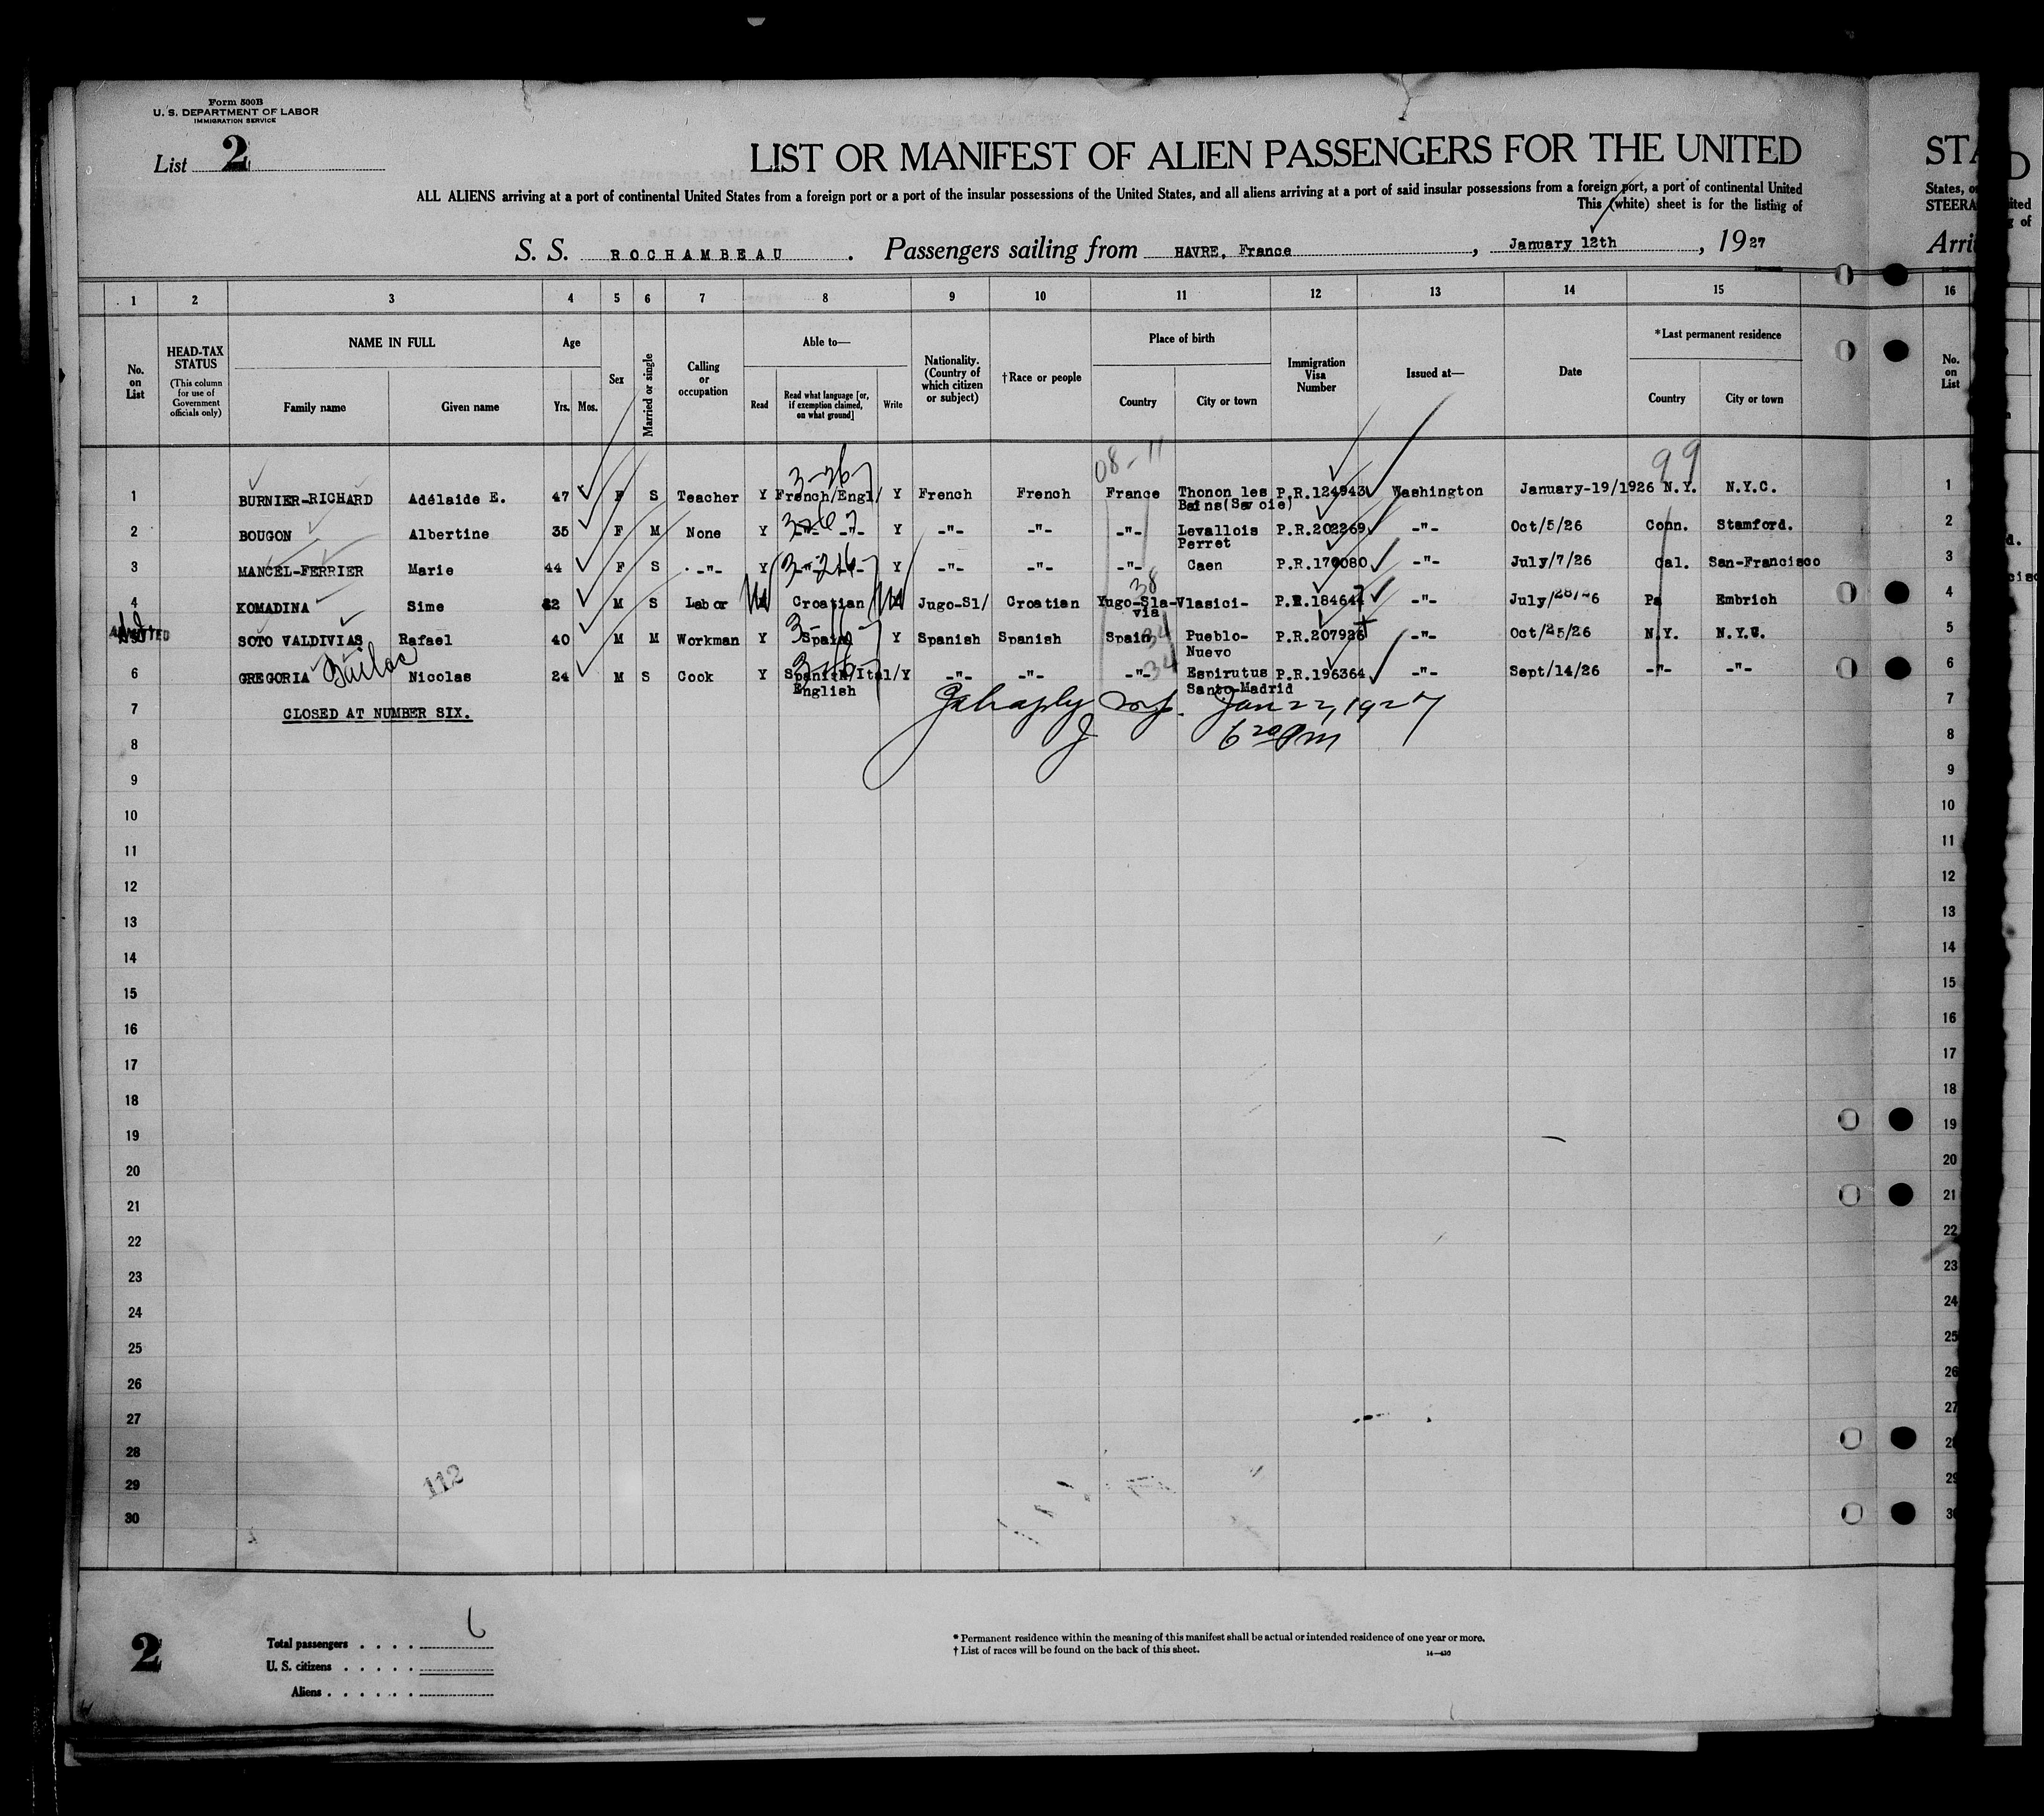 Form 500B
U. S. DEPARTMENT OF LABOR
IMMIGRATION SERVICE
List 2
LIST OR MANIFEST OF ALIEN PASSENGERS FOR THE UNITED
ALL ALIENS arriving at a port of continental United States from a foreign port or a port of the insular possessions of the United States, and all aliens arriving at a port of said insular possessions from a foreign port, a port of continental United
This (white) sheet is for the listing of
S. S. ROCHAMBEAU. Passengers sailing from HAVRE, France, January 12th, 1927
1 2 3 4 5 6 7 8 9 10 11 12 13 14 15 16
No. on List
HEAD-TAX STATUS (This column for use of Government officials only)
NAME IN FULL Family name Given name
Age Yrs. Mos.
Sex
Married or single
Calling or occupation
Able to— Read Read what language [or, if exemption claimed, on what ground] Write
Nationality. (Country of which citizen or subject)
†Race or people
Place of birth Country City or town
Immigration Visa Number
Issued at—
Date
*Last permanent residence Country City or town
No. on List
08-11 99
1 BURNIER-RICHARD Adélaide E. 47 F S Teacher Y French/Engl/ Y French French France Thonon les Bains(Savoie) P.R.124943 Washington January-19/1926 N.Y. N.Y.C. 1
2 BOUGON Albertine 35 F M None Y -"- -"- Y -"- -"- -"- Levallois Perret P.R.202269 -"- Oct/5/26 Conn. Stamford. 2
3 MANCEL-FERRIER Marie 44 F S -"- Y -"- -"- Y -"- -"- -"- Caen P.R.170080 -"- July/7/26 Cal. San-Francisco 3
4 KOMADINA Sime M S Labor Croatian Jugo-Sl/ Croatian Yugo-Sla-via Vlasici- P.R.184644 -"- July/ Pa Embrich 4
ADMITTED SOTO VALDIVIAS Rafael 40 M M Workman Y Spain Y Spanish Spanish Spain Pueblo-Nuevo P.R.207926 -"- Oct/25/26 N.Y. N.Y.C. 5
6 GREGORIA Nicolas 24 M S Cook Y Spanish/Ital/ English Y -"- -"- -"- Espirutus Santo-Madrid P.R.196364 -"- Sept/14/26 -"- -"- 6
7 CLOSED AT NUMBER SIX. Jan 22, 1927 7
8 6 20 PM 8
9 9
10 10
11 11
12 12
13 13
14 14
15 15
16 16
17 17
18 18
19 19
20 20
21 21
22 22
23 23
24 24
25 25
26 26
27 27
28
29 112
30
2
Total passengers . . . . 6
U. S. citizens . . . . .
Aliens . . . . . .
* Permanent residence within the meaning of this manifest shall be actual or intended residence of one year or more.
† List of races will be found on the back of this sheet.
14—430